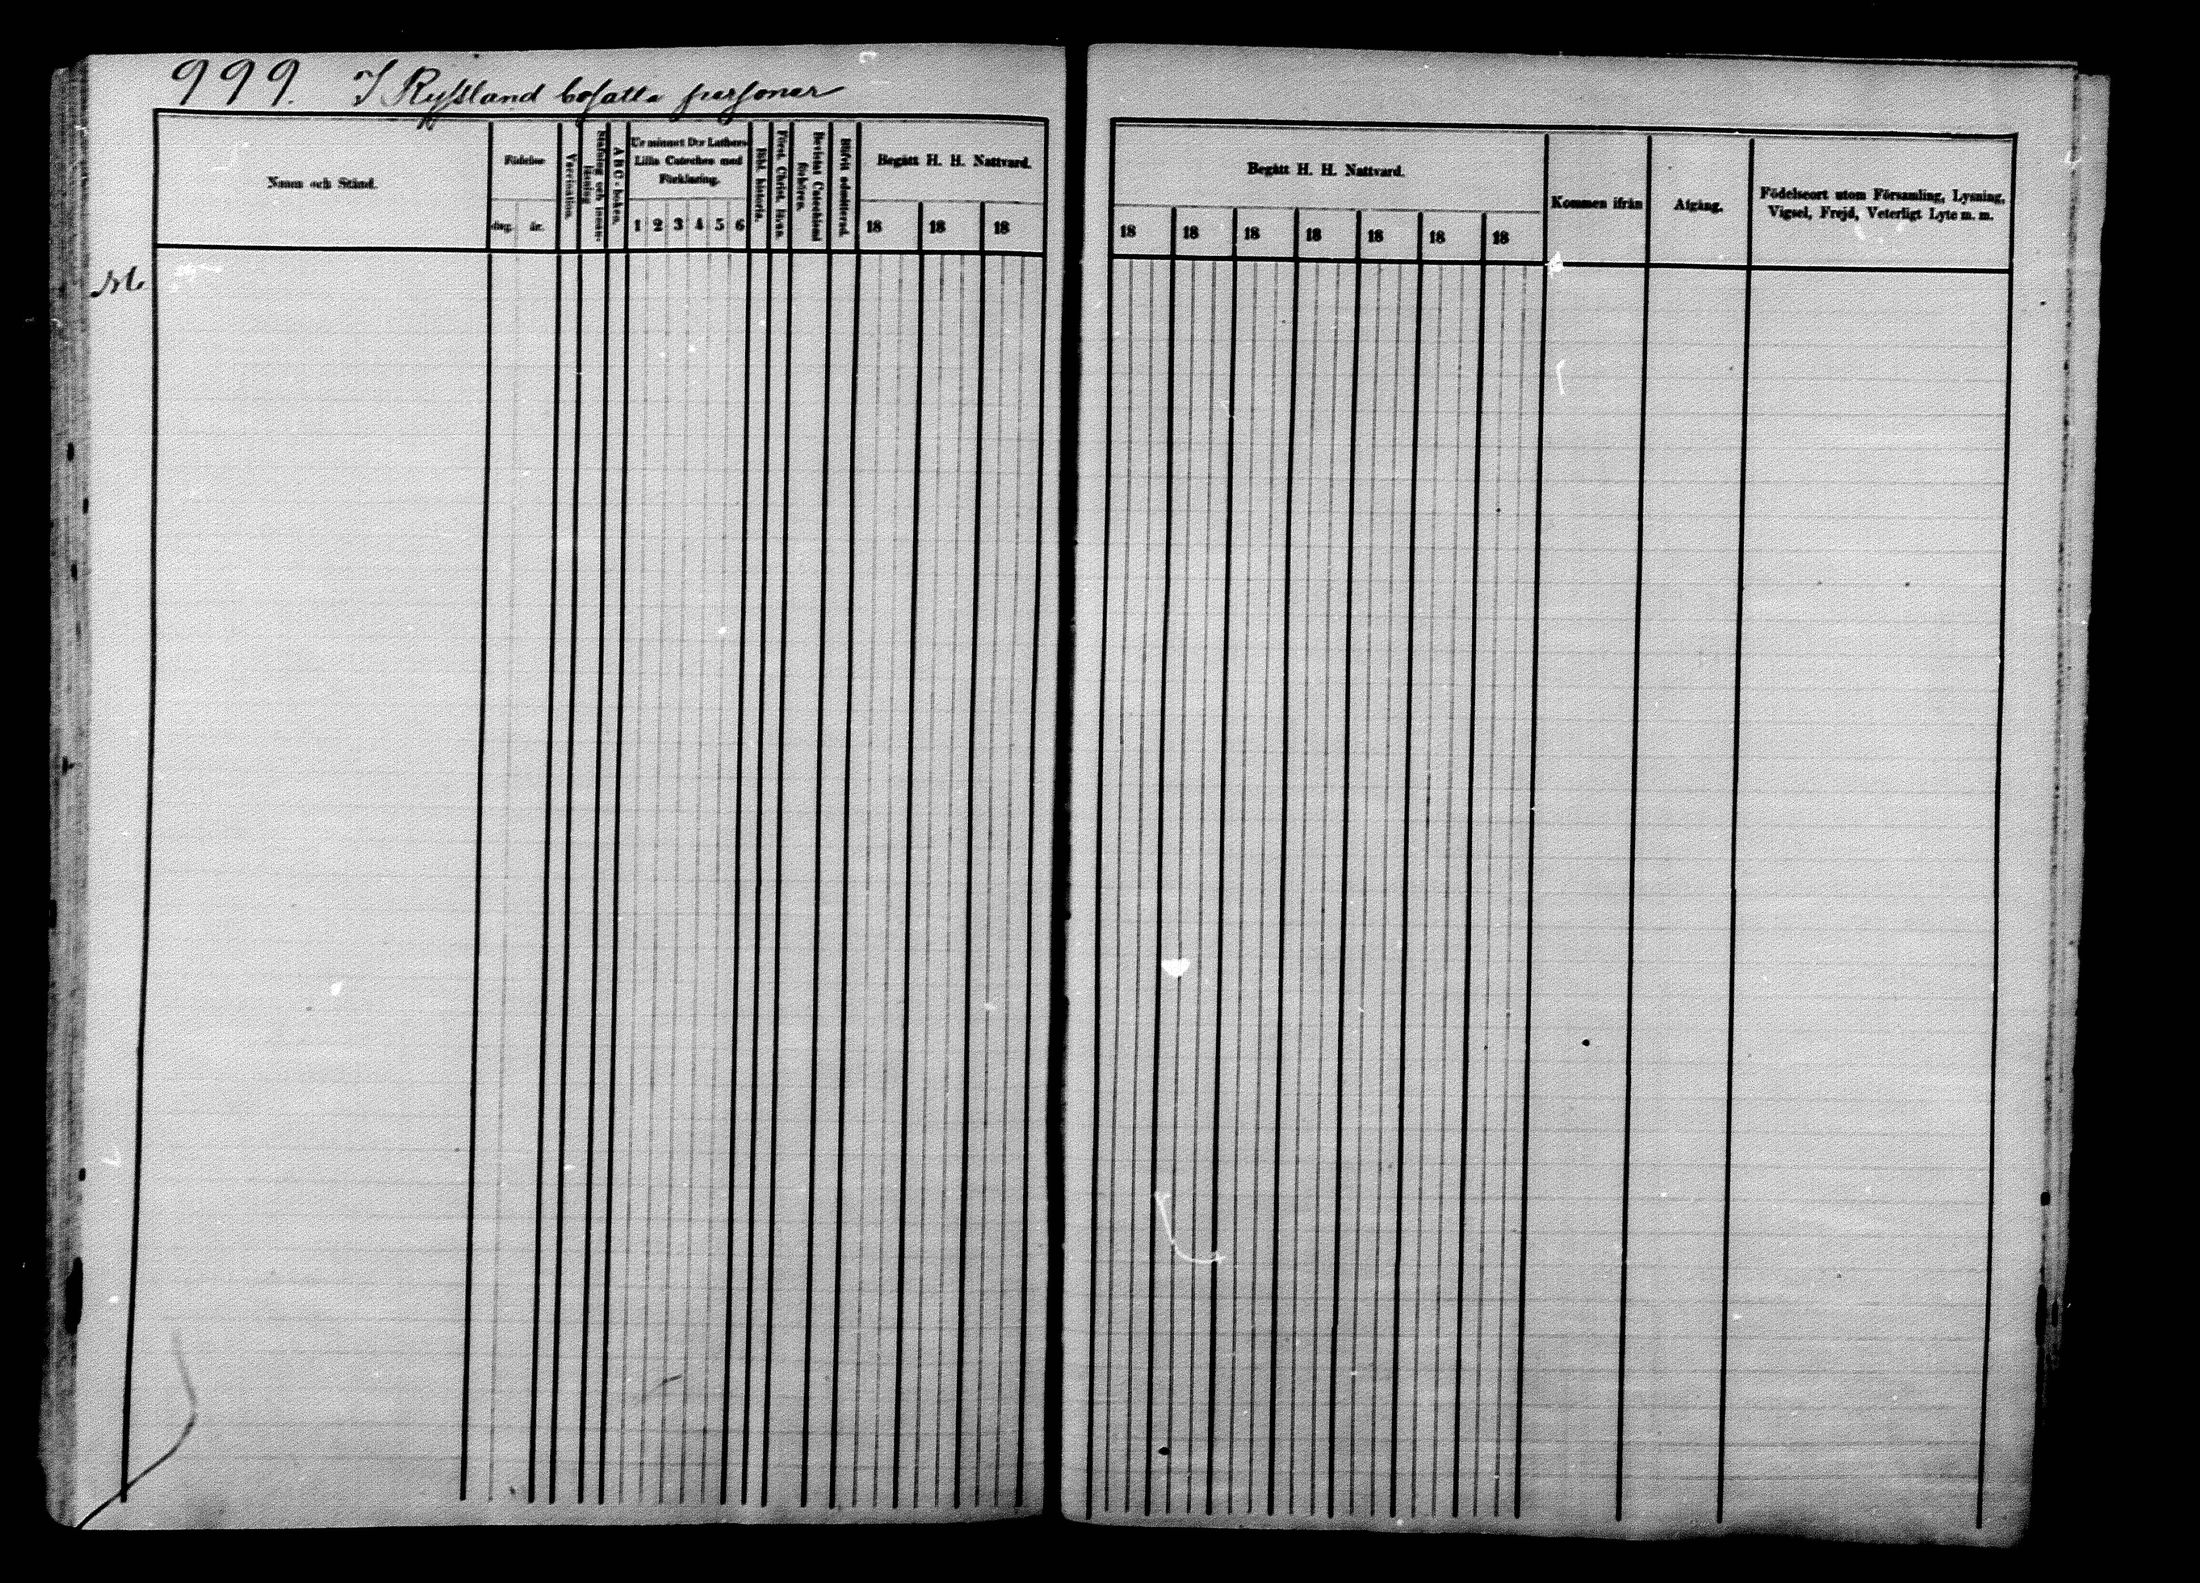 999. I Ryssland bosatta personer
Namn och Stånd.
Födelse
dag. år.
Vaccination.
Stafning och innan-
läsning
A B C-boken.
Ur minnet D:r Luthers
Lilla Cateches med
Förklaring.
1 2 3 4 5 6
Bibl. historia.
Först. Christ. läran.
Bevistat Catechismi
förhören.
Blifvit admitterad.
Begått H. H. Nattvard.
18 18 18
Begått H. H. Nattvard.
18 18 18 18 18 18 18
Kommen ifrån
Afgång.
Födelseort utom Församling, Lysning,
Vigsel, Frejd, Veterligt Lyte m. m.